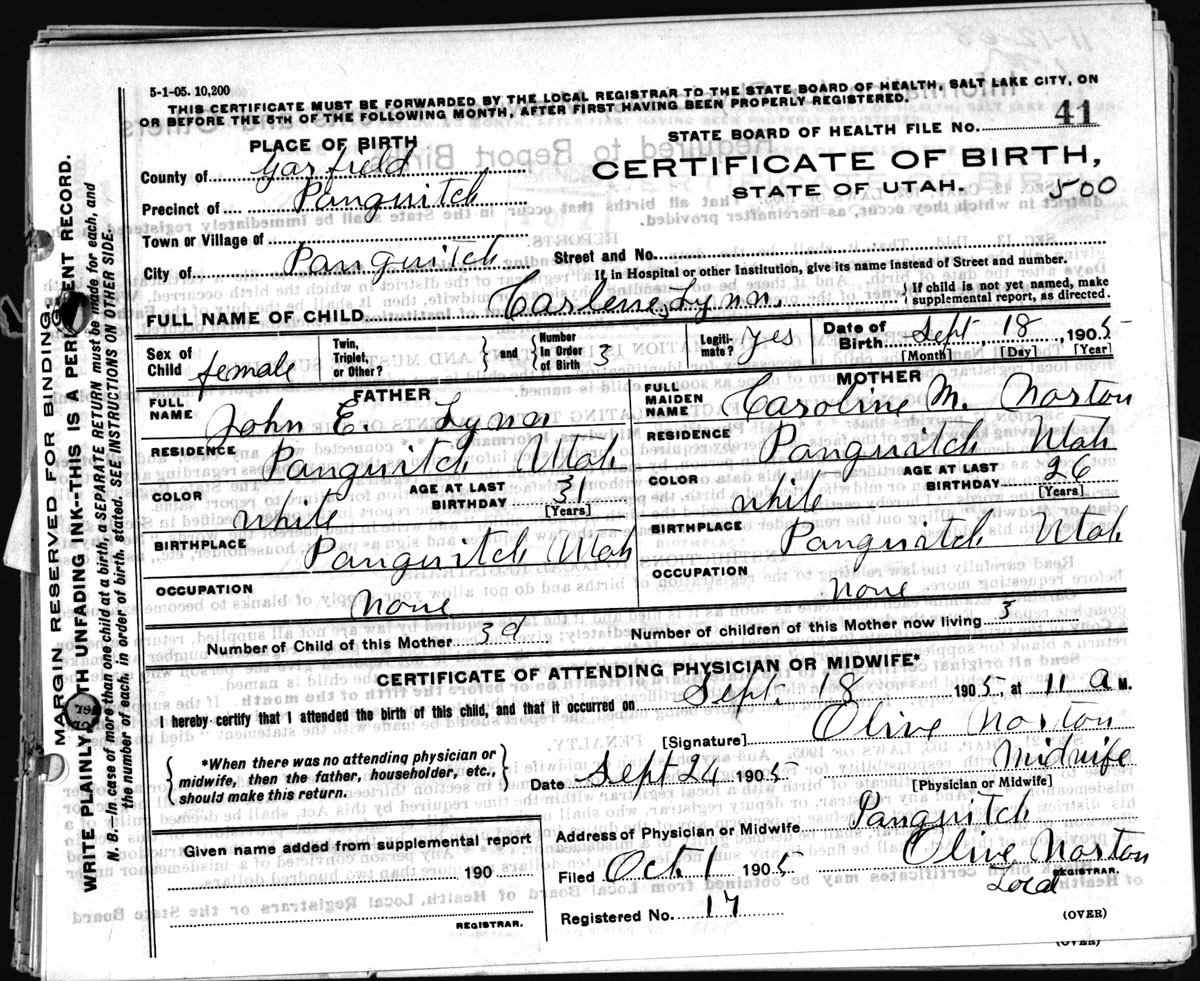 5-1-05. 10,200
THIS CERTIFICATE MUST BE FORWARDED BY THE LOCAL REGISTRAR TO THE STATE BOARD OF HEALTH, SALT LAKE CITY, ON
OR BEFORE THE 5TH OF THE FOLLOWING MONTH, AFTER FIRST HAVING BEEN PROPERLY REGISTERED.
STATE BOARD OF HEALTH FILE NO. 41
PLACE OF BIRTH
CERTIFICATE OF BIRTH,
STATE OF UTAH. 500
County of Garfield
Precinct of Panguitch
Town or Village of
City of Panguitch Street and No.
If, in Hospital or other Institution, give its name instead of Street and number.
FULL NAME OF CHILD Carlene Lynn. { If child is not yet named, make
supplemental report, as directed.
Sex of Child female Twin, Triplet, or Other? } and { Number In Order of Birth 3 Legiti- mate? Yes Date of Birth Sept, 18, 1905
[Month] [Day] [Year]
FATHER MOTHER
FULL NAME John E. Lynn FULL MAIDEN NAME Caroline M. Norton
RESIDENCE Panguitch Utah RESIDENCE Panguitch Utah
COLOR white AGE AT LAST BIRTHDAY 31 [Years] COLOR white AGE AT LAST BIRTHDAY 26 [Years]
BIRTHPLACE Panguitch Utah BIRTHPLACE Panguitch Utah
OCCUPATION None OCCUPATION None
Number of Child of this Mother 3d Number of children of this Mother now living 3
CERTIFICATE OF ATTENDING PHYSICIAN OR MIDWIFE*
I hereby certify that I attended the birth of this child, and that it occurred on Sept. 18 1905, at 11 a M.
[Signature] Olive Norton
{ *When there was no attending physician or
midwife, then the father, householder, etc.,
should make this return. }
Date Sept 24 1905 Midwife
[Physician or Midwife]
Address of Physician or Midwife Panguitch
Given name added from supplemental report
190
REGISTRAR.
Filed Oct. 1 1905 Olive Norton
REGISTRAR.
Registered No. 17
(OVER)
(OVER)
MARGIN RESERVED FOR BINDING.
WRITE PLAINLY, WITH UNFADING INK--THIS IS A PERMANENT RECORD.
N. B.--In case of more than one child at a birth, a SEPARATE RETURN must be made for each, and
the number of each, in order of birth, stated. SEE INSTRUCTIONS ON OTHER SIDE.